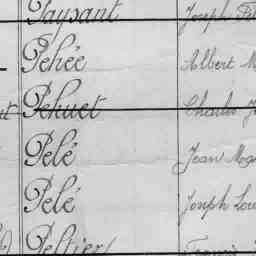 Paysant Joseph
Pehée Albert
Pehuet Charles
Pelé Jean
Pelé Joseph
Peltier